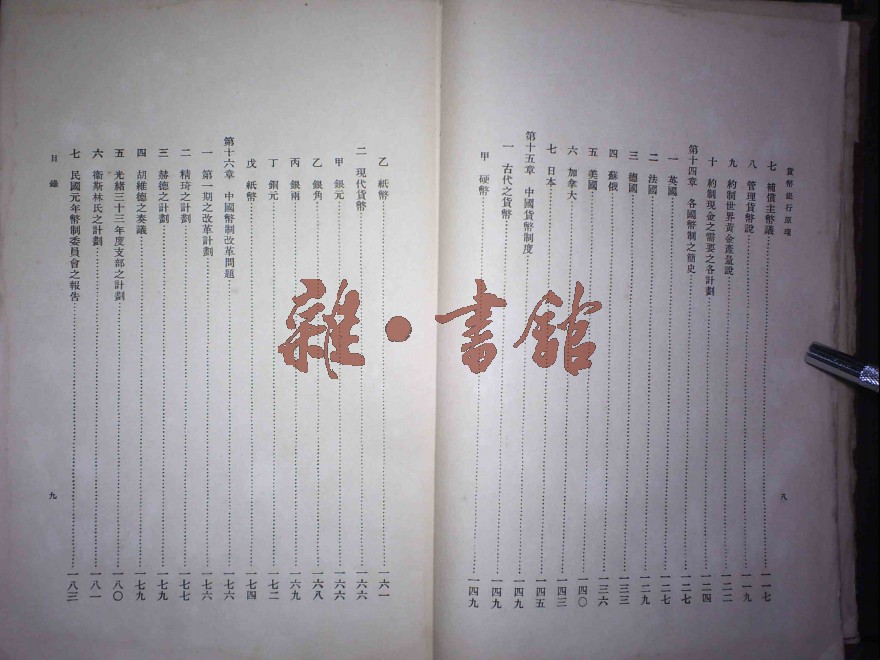 貨幣銀行原理
八
七 補償主幣議 一一七
八 管理貨幣說 一一九
九 約制世界黃金產量說 一二二
十 約制現金之需要之各計劃 一二四
第十四章 各國幣制之簡史 一二七
一 英國 一二七
二 法國 一二九
三 德國 一三三
四 蘇俄 一三六
五 美國 一四〇
六 加拿大 一四三
七 日本 一四五
第十五章 中國貨幣制度 一四九
一 古代之貨幣 一四九
甲 硬幣 一四九
乙 紙幣 一六一
二 現代貨幣 一六六
甲 銀元 一六六
乙 銀角 一六八
丙 銀兩 一六九
丁 銅元 一七二
戊 紙幣 一七四
第十六章 中國幣制改革問題 一七六
一 第一期之改革計劃 一七六
二 精琦之計劃 一七七
三 赫德之計劃 一七九
四 胡維德之奏議 一七九
五 光緒三十三年度支部之計劃 一八〇
六 衛斯林氏之計劃 一八一
七 民國元年幣制委員會之報告 一八三
目錄
九
雜·書館